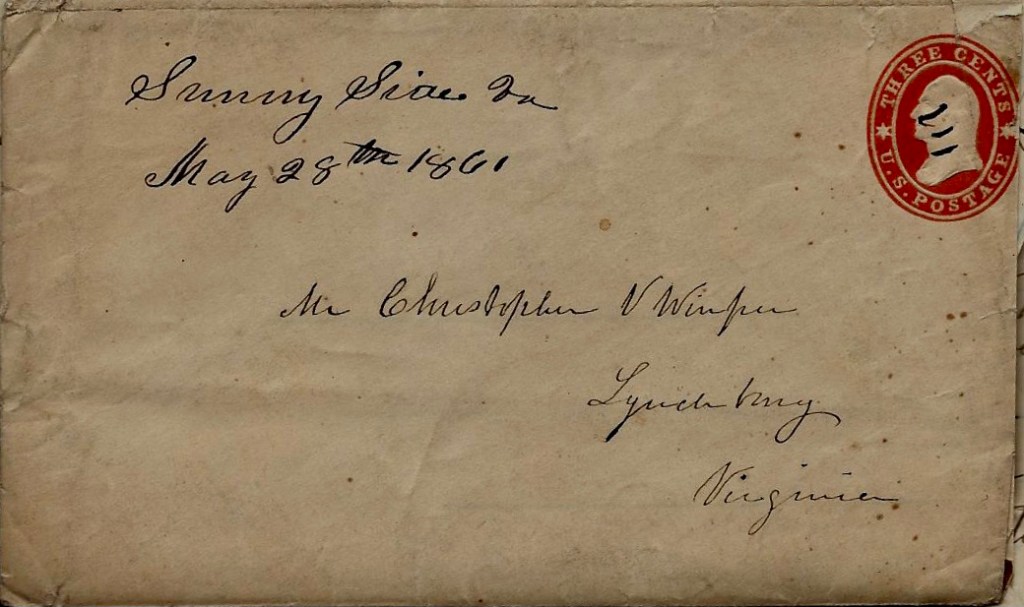 Sunny Side Va
May 28th 1861
THREE CENTS
U.S. POSTAGE
Mr Christopher V Winfree
Lynchburg
Virginia